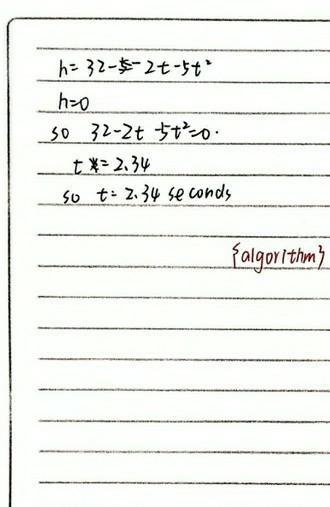 h= 32-2t-5t²
h=0
so 32-2t-5t²=0.
t = 2.34
so t= 2.34 seconds
{algorithm}